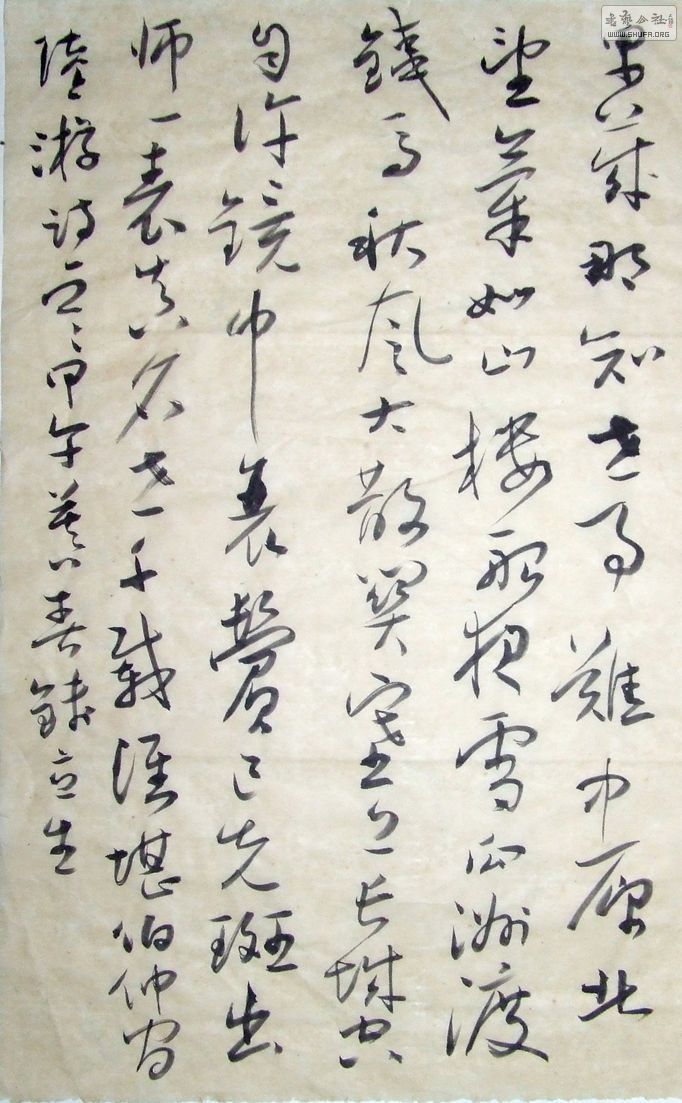 書藝公社
WWW.SHUFA.ORG
早歲那知世事難中原北
望氣如山樓船夜雪瓜洲渡
鐵馬秋風大散關塞上長城空
自许鏡中衰鬢已先斑出
师一表真名世千載誰堪伯仲間
陸游詩 甲午暮春 立生